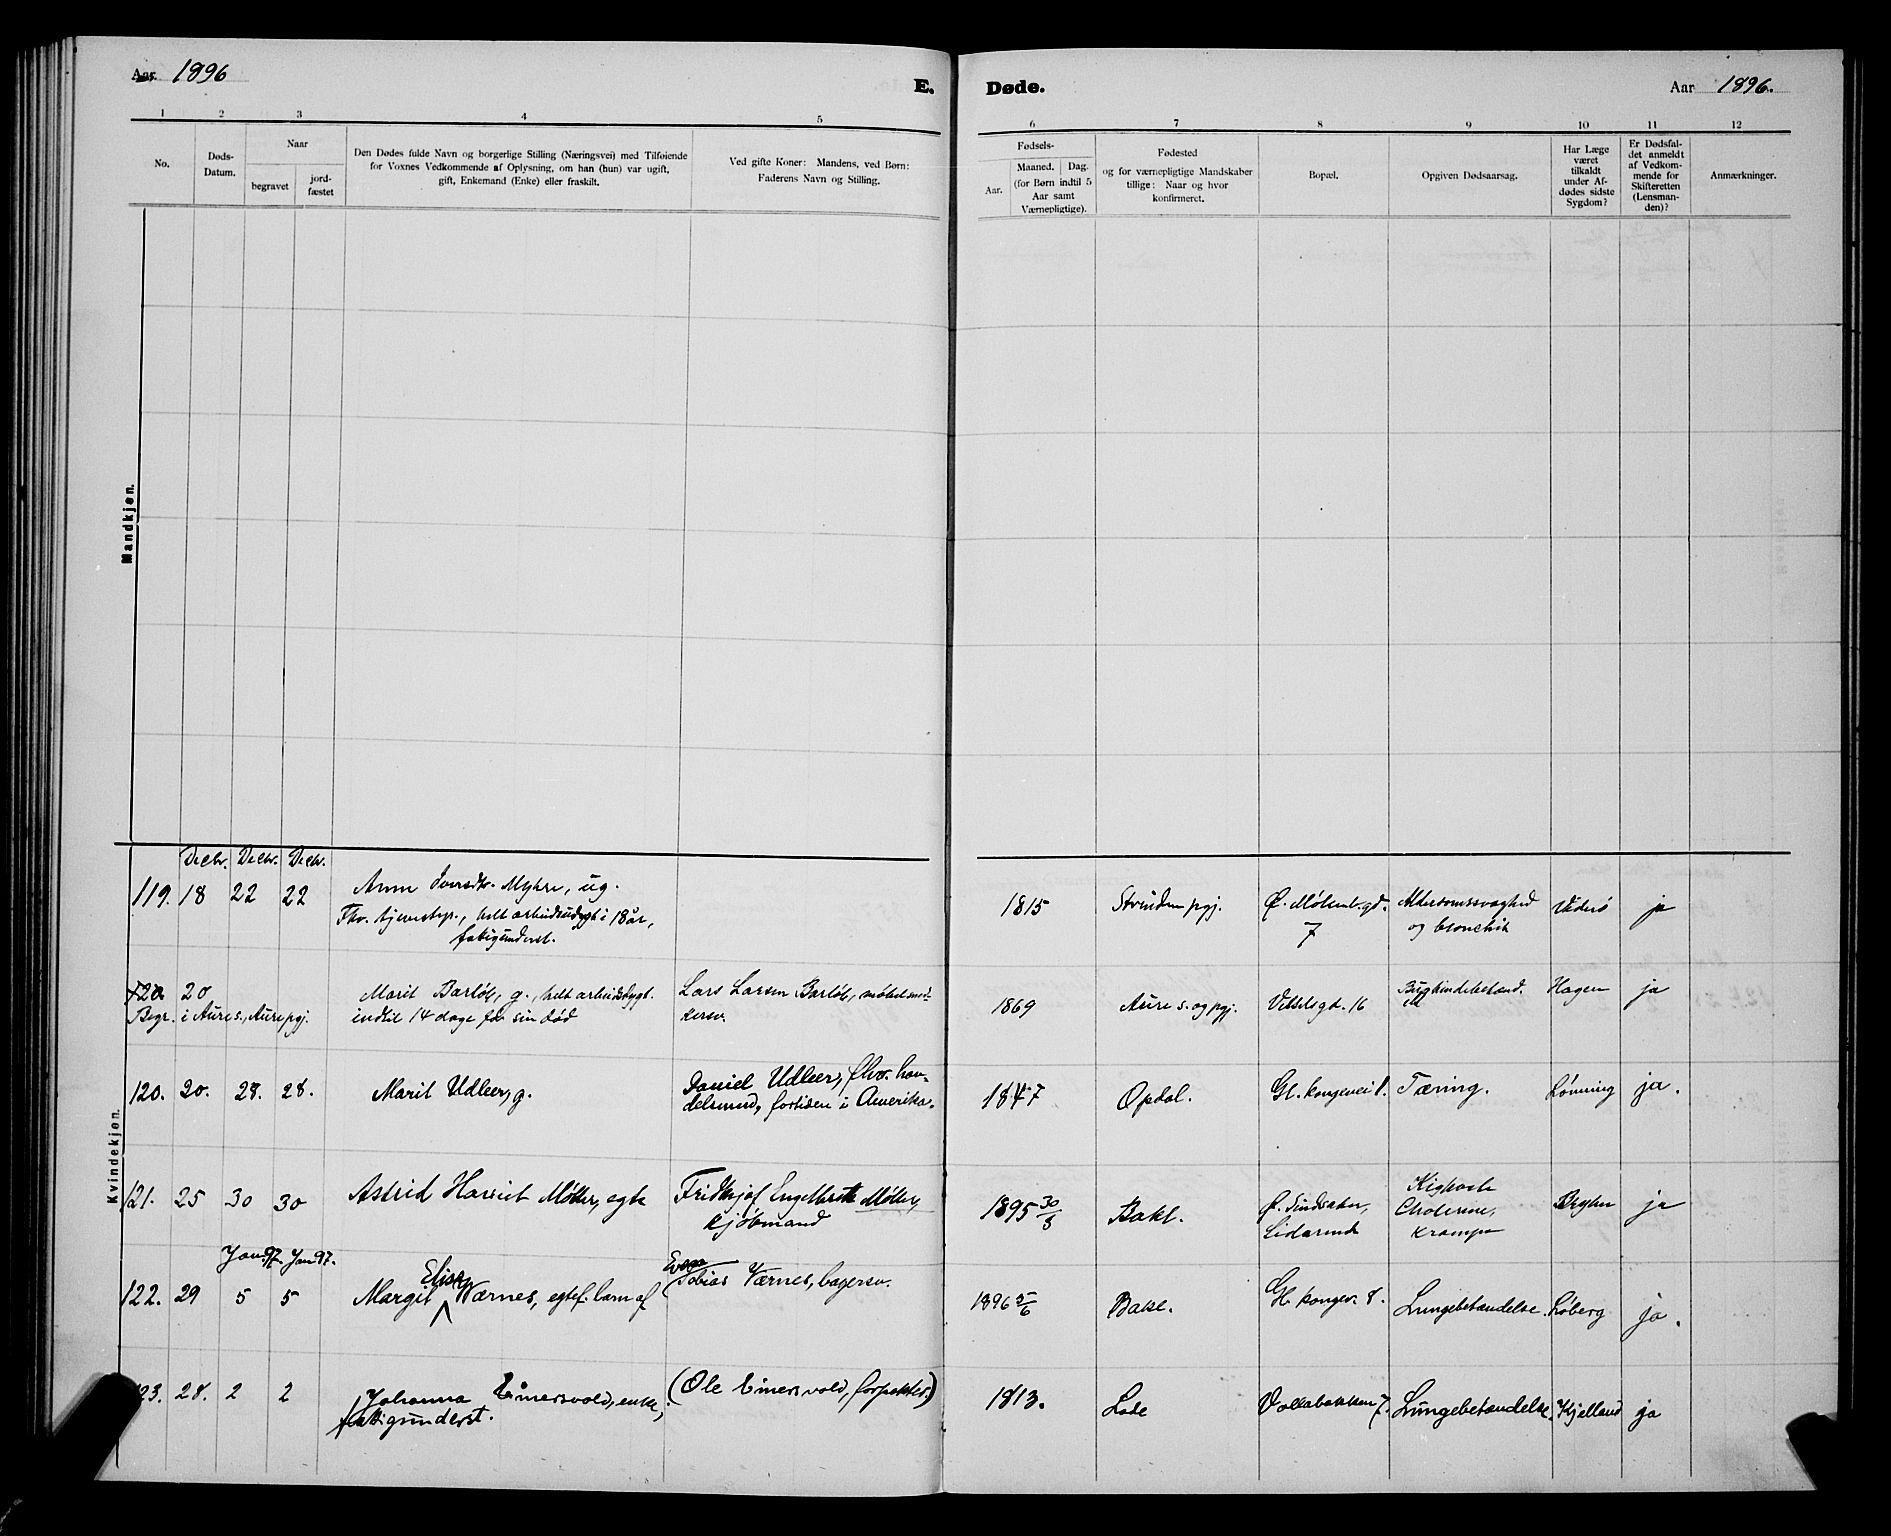 Aar 1896
E. Døde.
Aar 1896.
1 2 3 4 5 6 7 8 9 10 11 12
No.
Døds-
Datum.
Naar
begravet
jord-
fæstet
Den Dødes fulde Navn og borgerlige Stilling (Næringsvei) med Tilføiende
for Voxnes Vedkommende af Oplysning, om han (hun) var ugift,
gift, Enkemand (Enke) eller fraskilt.
Ved gifte Koner: Mandens, ved Børn:
Faderens Navn og Stilling.
Fødsels-
Aar.
Maaned. Dag.
(for Børn indtil 5
Aar samt
Værnepligtige).
Fødested
og for værnepligtige Mandskaber
tillige: Naar og hvor
konfirmeret.
Bopæl.
Opgiven Dødsaarsag.
Har Læge
været
tilkaldt
under Af-
dødes sidste
Sygdom?
Er Dødsfal-
det anmeldt
af Vedkom-
mende for
Skifteretten
(Lensman-
den)?
Anmærkninger.
Mandkjøn.
Kvindekjøn.
Decbr. Decbr. Decbr.
119. 18 22 22
Anne Iversdtr. Myhre, ug.
Fhv. tjenestep., helt arbeidsudygt i 18 år,
fattigunderst.
1815
Strinden pgj.
Ø. Møllenb. gd.
7
Alderdomssvaghed
og bronchit
ja
120 20
Begr. i Aure s., Aure pgj.
Marit Barløs, g., helt arbeidsdygt.
indtil 14 dage før sin død
Lars Larsen Barløs, møbelsned-
kersv.
1869
Aure s. og pgj.
16
Hagen
ja
120. 20. 28. 28.
Marit Udleer, g.
Daniel Udleer, fhv. han-
delsmand, fortiden i Amerika.
1847
Opdal.
Gl. kongevei 8.
Tæring.
Lønning
ja.
121. 25 30 30
Astrid Harriet Møller, egte
Fridthjof Engelbrett Møller,
kjøbmand
1895 30/8
Bakl.
Kighoste
Cholerine,
krampe
Bryhn
ja
Jan. 97. Jan 97.
122. 29 5 5
Margit Elise Værnes, egtef. barn af
Tobias Værnes, bagersv.
1896 5/6
Bakl.
Gl. kongev. 8.
Lungebetændelse.
Løberg
ja.
123. 28. 2 2
Johanna Einersvold, enke,
fattigunderst.
(Ole Einersvold, forpakter.)
1813.
Lade
Voldabakken 7.
Lungebetændelse.
Kjelland
ja